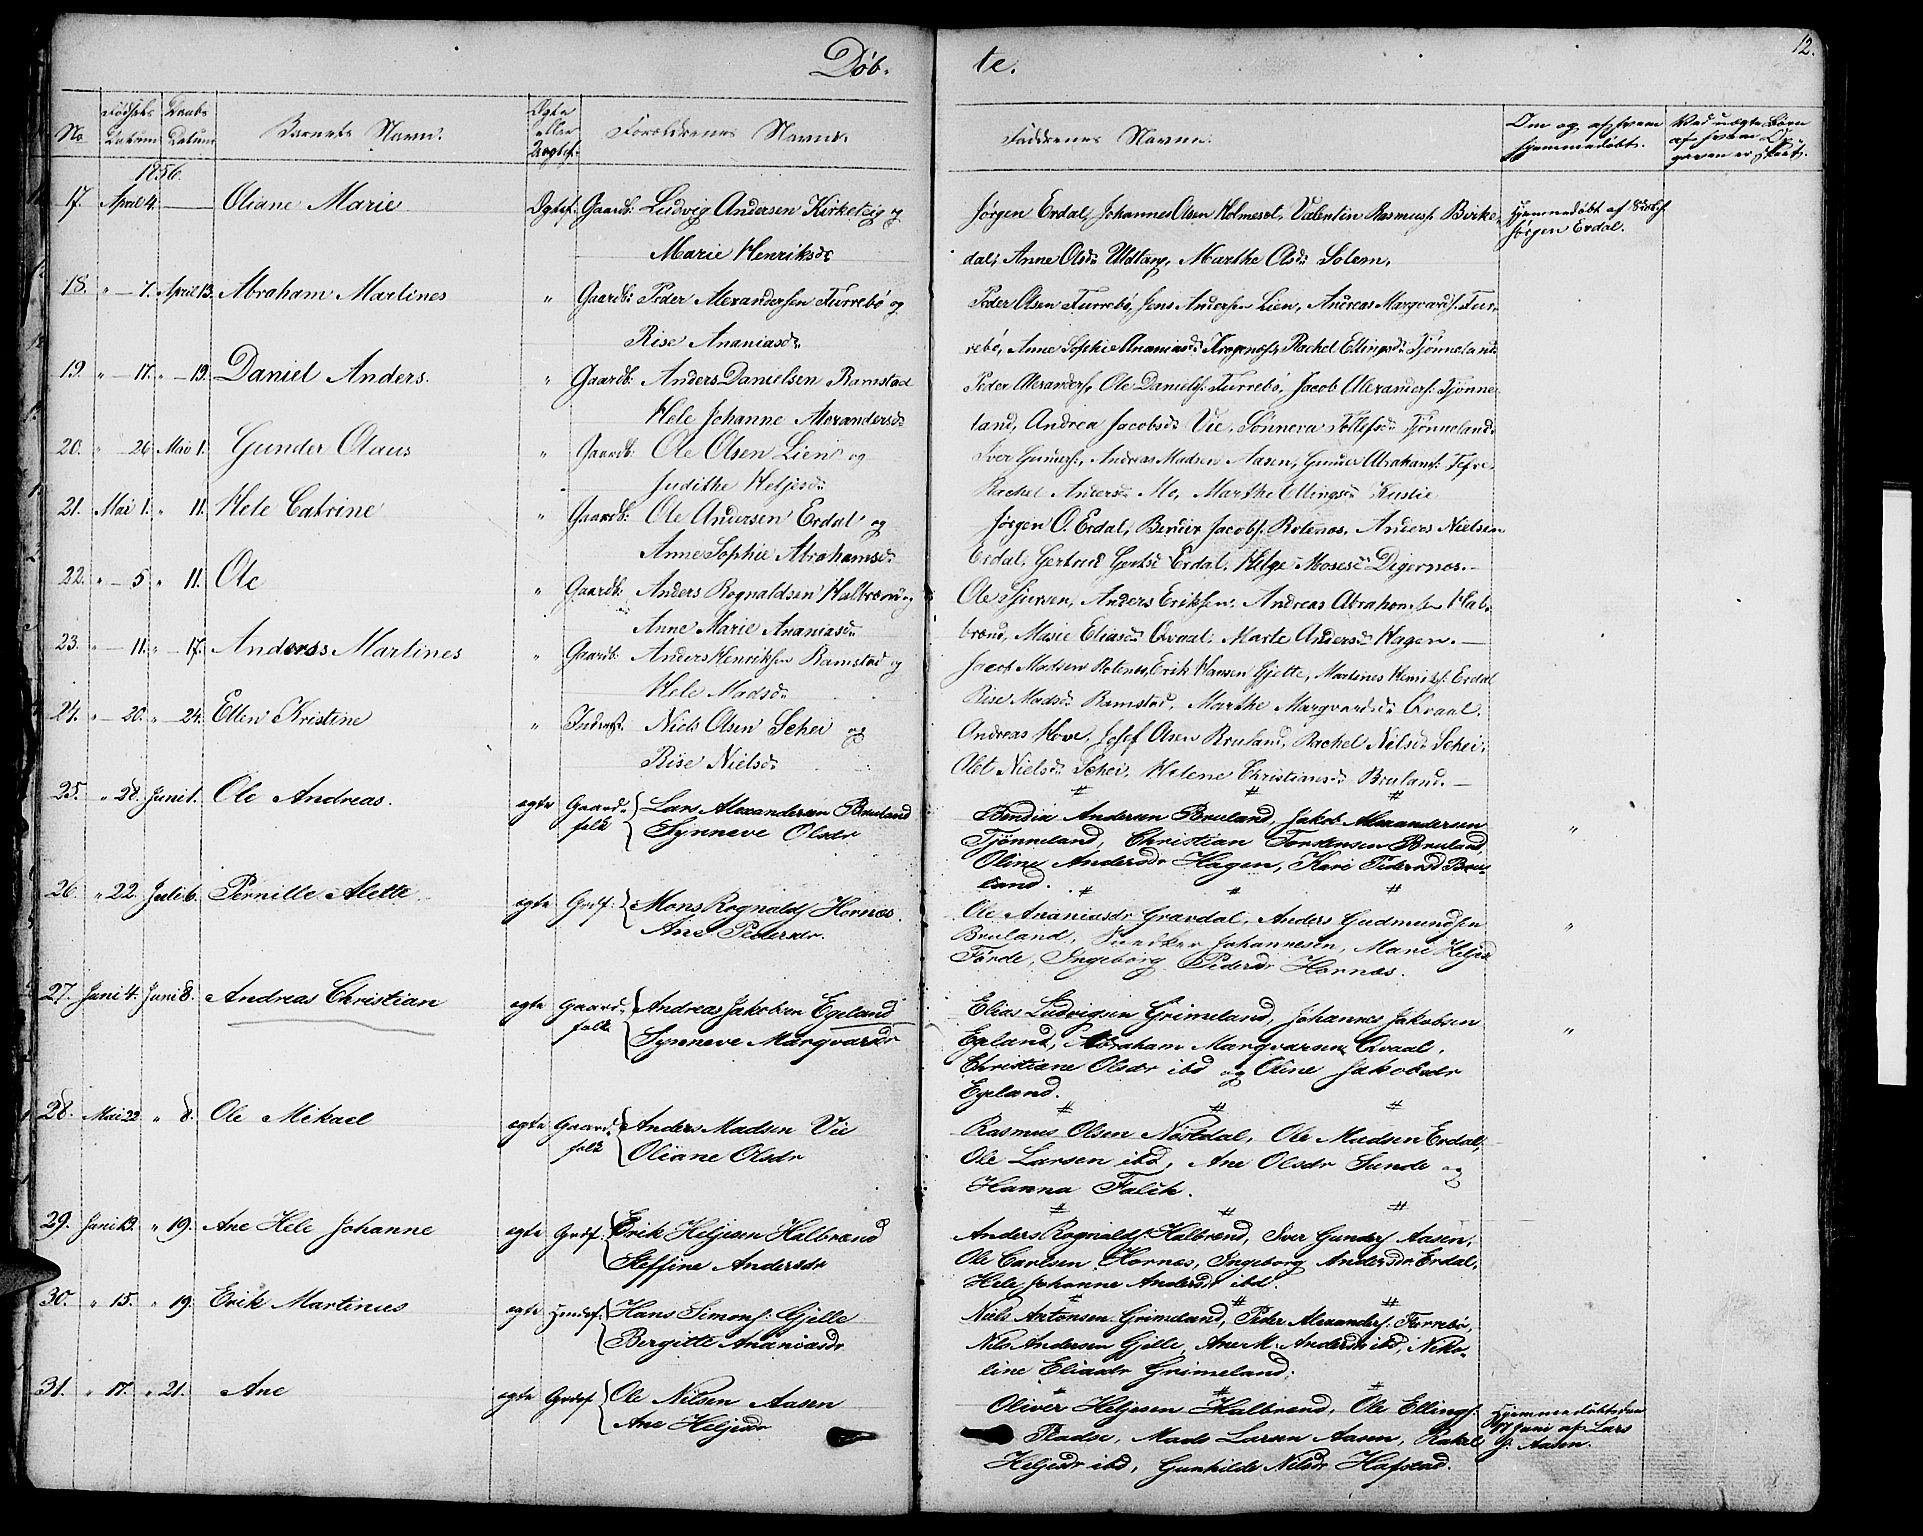 Døb-
te.
12.
No
Fødsels Datum
Daabs Datum
Barnets Navn.
Ægte eller Uægtef.
Forældrenes Navne.
Faddrenes Navne.
Om og af hvem hjemmedøbt.
Ved uægte Børn af hvem Op-
gaven er skeet.
1856.
17. April 4. — Oliane Marie Ægtef. Gaardb: Ludvig Andersen Kirketeig og
Marie Henriksdr
Jørgen Erdal, Johannes Olsen Holmeset, Valentin Rasmuss. Birke-
dal, Anne Olsdr Uldtang, Marthe Olsdr Solem.
Hjemmedøbt af
Jørgen Erdal.
18. " — 7. April 13. Abraham Martines " Gaardb: Peder Alexandersen Furrebø og
Rise Ananiasdr
Peder Olsen Furrebø, Jens Andersen Lien, Andreas Margvards. Fur-
rebø, Anne Sophie Ananiasdr Rachel Ellingsdr Tjønneland
19. " — 17. " — 19. Daniel Anders. " Gaardb: Anders Danielsen Ramstad
Hele Johanne Alexandersdr
Peder Alexanders, Ole Daniels. Furrebø, Jacob Alexanders. Tjønne-
land, Andrea Jacobsdr Vie, Sønneva Tollefsdr Tjønneland.
20. " 26 Mai 1. Gunder Olaus " Gaardb: Ole Olsen Lien og
Judithe Heljesdr
Iver Gunders., Andreas Madsen Aasen, Gunder Abrahams.
Rachel Andersdr Mo, Marthe Ellingsdr
21. Mai 1. " 11. Hele Catrine " Gaardb: Ole Andersen Erdal og
Anne Sophie Abrahamsdr
Jørgen O. Erdal, Bendix Jacobs. Rotenes, Anders Nielsen
Erdal, Gertrud Gertsdr Erdal, Helge Mosesdr Digernes.—
22. " — 5 " 11. Ole " Gaardb: Anders Rognaldsen Halbrænd og
Anne Marie Ananiasdr
Ole Sjursen, Anders Eriksen, Andreas Abrahamsen Hal-
brænd, Marie Eliasdr Qvaal, Marte Andersdr Hagen.—
23. " — 11. " — 17. Anders Martines " Gaardb: Anders Henriksen Ramstad og
Hele Madsdr
Jacob Madsen Rotenes, Erik Hansen Gjelle, Martines Henriks. Erdal
Rise Madsdr Ramstad, Marthe Margvardsdr Qvaal.
24. " — 20. " — 24. Ellen Kristine " Inderst: Niels Olsen Schei og
Rise Nielsdr
Andreas Hove, Josef Olsen Bruland, Rachel Nilsdr Schei,
Alet Nielsdr Schei, Helene Christiansdr Bruland.—
25. " 28. Juni 1. Ole Andreas. ægte Gaard-
folk Lars Alexandersen Bruland
Synneve Olsdr
Bendix Andersen Bruland, Jakob Alexandersen
Tjønneland, Christian Torstensen Bruland,
Oline Andersdr Hagen, Kari Pedersd Bru-
land.
"
26. " 22. Juli 6. Pernille Alette. ægte Grdf: Mons Rognalds Hornæs.
Ane Pedersdr.
Ole Ananiasdr Gravdal, Anders Gudmundsen
Bruland, Johannesen, Mari Heljesd
Førde, Ingeborg Pedersdr Hornæs.
"
27. Juni 4. Juni 8. Andreas Christian ægte Gaard-
folk Andreas Jakobsen Egeland
Synneve Marqvarsdr
Elias Ludvigsen Grimeland, Johannes Jakobsen
Egeland, Abraham Marqvarsen Qvaal,
Christiane Olsdr ibd og Oline Jakobsdr
Egeland.
"
28. Mai 22 " 8. Ole Mikael ægte Gaard-
folk Anders Madsen Vie
Oliane Olsdr
Rasmus Olsen Nøstdal, Ole Madsen Erdal,
Ole Larsen ibd, Ane Olsdr Sunde og
Hanna Falch.
29. Juni 13. " 19. Ane Hele Johanne ægte Grdf: Erik Heljesen Halbrænd
Steffine Andersdr
Anders Rognalds Halbrend, Iver Gunders Aasen,
Ole Carlsen Hornæs, Ingeborg Andersdr Erdal,
Hele Johanne Andersdr ibd.
30. " 15. " 19. Erik Martinus ægte Hmdsf: Hans Simons. Gjelle
Bergitte Ananiasdr
Niels Antonsen Grimeland, Peder Alexanders. Furrebø,
Nils Andersen Gjelle, Ane M. Andersdr ibd, Niko-
line Eliasdr Grimeland.
31. " 17. " 21. Ane ægte Grdsf. Ole Nilsen Aasen
Ane Heljesdr
Oliver Heljesen Halbrend, Ole Ellings.
Pladse, Mads Larsen Aasen, Rakel
Heljesdr ibd, Gunhilde Nilsdr Hafstad.
Hjemmedøbt den
17 Juni af Lars
Aasen.